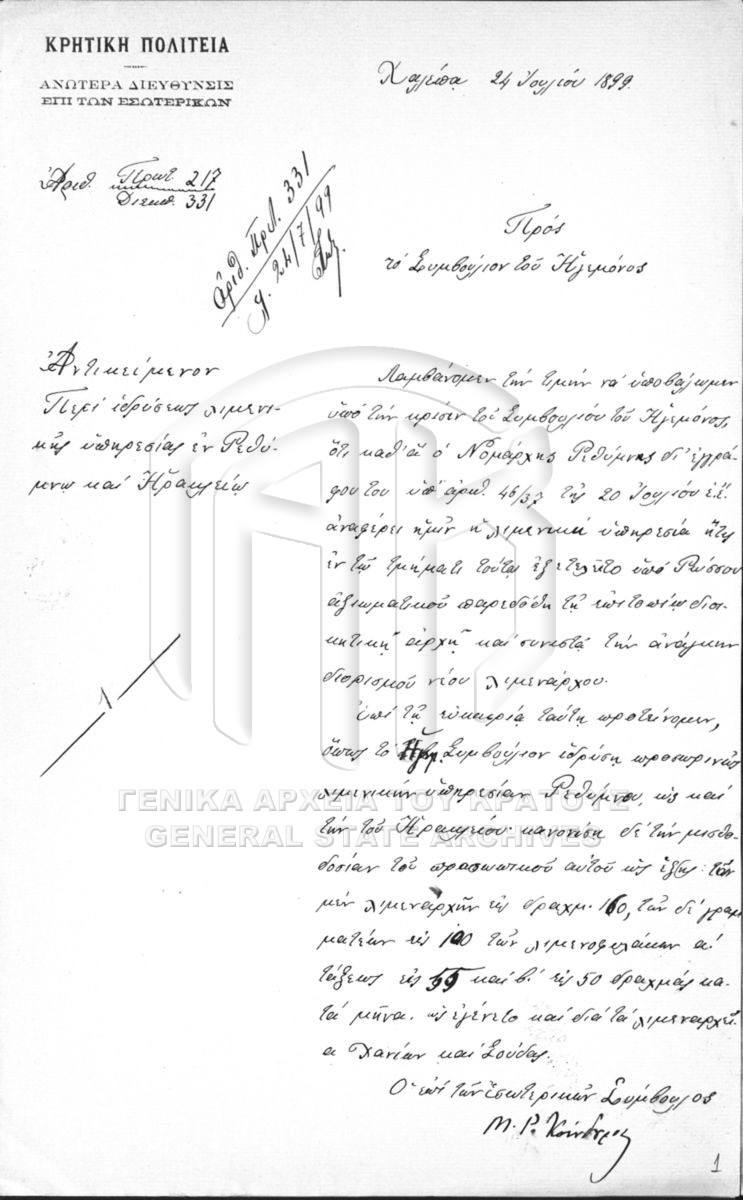 ΚΡΗΤΙΚΗ ΠΟΛΙΤΕΙΑ
ΑΝΩΤΕΡΑ ΔΙΕΥΘΥΝΣΙΣ
ΕΠΙ ΤΩΝ ΕΣΩΤΕΡΙΚΩΝ
Χαλέπα 24 Ἰουλίου 1899.
Ἀριθ. Πρωτ. 217
Διεκπ. 331
ἀριθ. Πρωτ. 331
24/7/99
Πρὸς
τὸ Συμβούλιον τοῦ Ἡγεμόνος
Ἀντικείμενον
Περὶ ἱδρύσεως λιμενι-
κῆς ὑπηρεσίας ἐν Ρεθύ-
μνῳ καὶ Ἡρακλείῳ
Λαμβάνομεν τὴν τιμὴν νὰ ὑποβάλωμεν
ὑπὸ τὴν κρίσιν τοῦ Συμβουλίου τοῦ Ἡγεμόνος,
ὅτι καθ' ἃ ὁ Νομάρχης Ρεθύμνης δι' ἐγγρά-
φου του ὑπ' ἀριθ. 46/37 τῆς 20 Ἰουλίου ἐ.ἔ.
ἀναφέρει ἡμῖν ἡ λιμενικὴ ὑπηρεσία ἥτις
ἐν τῷ τμήματι τούτῳ ἐξετελεῖτο ὑπὸ Ρώσσου
ἀξιωματικοῦ παρεδόθη τῇ ἐπιτοπίῳ διοι-
κητικῇ ἀρχῇ καὶ συνιστᾷ τὴν ἀνάγκην
διορισμοῦ νέου λιμενάρχου.
Ἐπὶ τῇ εὐκαιρίᾳ ταύτῃ προτείνομεν,
ὅπως τὸ Συμβούλιον ἱδρύσῃ προσωρινῶς
λιμενικὴν ὑπηρεσίαν Ρεθύμνου, ὡς καὶ
τὴν τοῦ Ἡρακλείου· κανονίσῃ δὲ τὴν μισθο-
δοσίαν τοῦ προσωπικοῦ αὐτοῦ ὡς ἑξῆς: τῶν
μὲν λιμεναρχῶν εἰς δραχμ. 160, τῶν δὲ γραμ
ματέων εἰς 100 τῶν λιμενοφυλάκων α'
τάξεως εἰς 55 καὶ β' εἰς 50 δραχμὰς κα-
τὰ μῆνα. ὡς ἐγένετο καὶ διὰ τὰ λιμεναρχεῖ-
α Χανίων καὶ Σούδας.
Ὁ ἐπὶ τῶν Ἐσωτερικῶν Σύμβουλος
Μ. Ρ. Κούνδουρος
1
ΓΕΝΙΚΑ ΑΡΧΕΙΑ ΤΟΥ ΚΡΑΤΟΥΣ
GENERAL STATE ARCHIVES
1